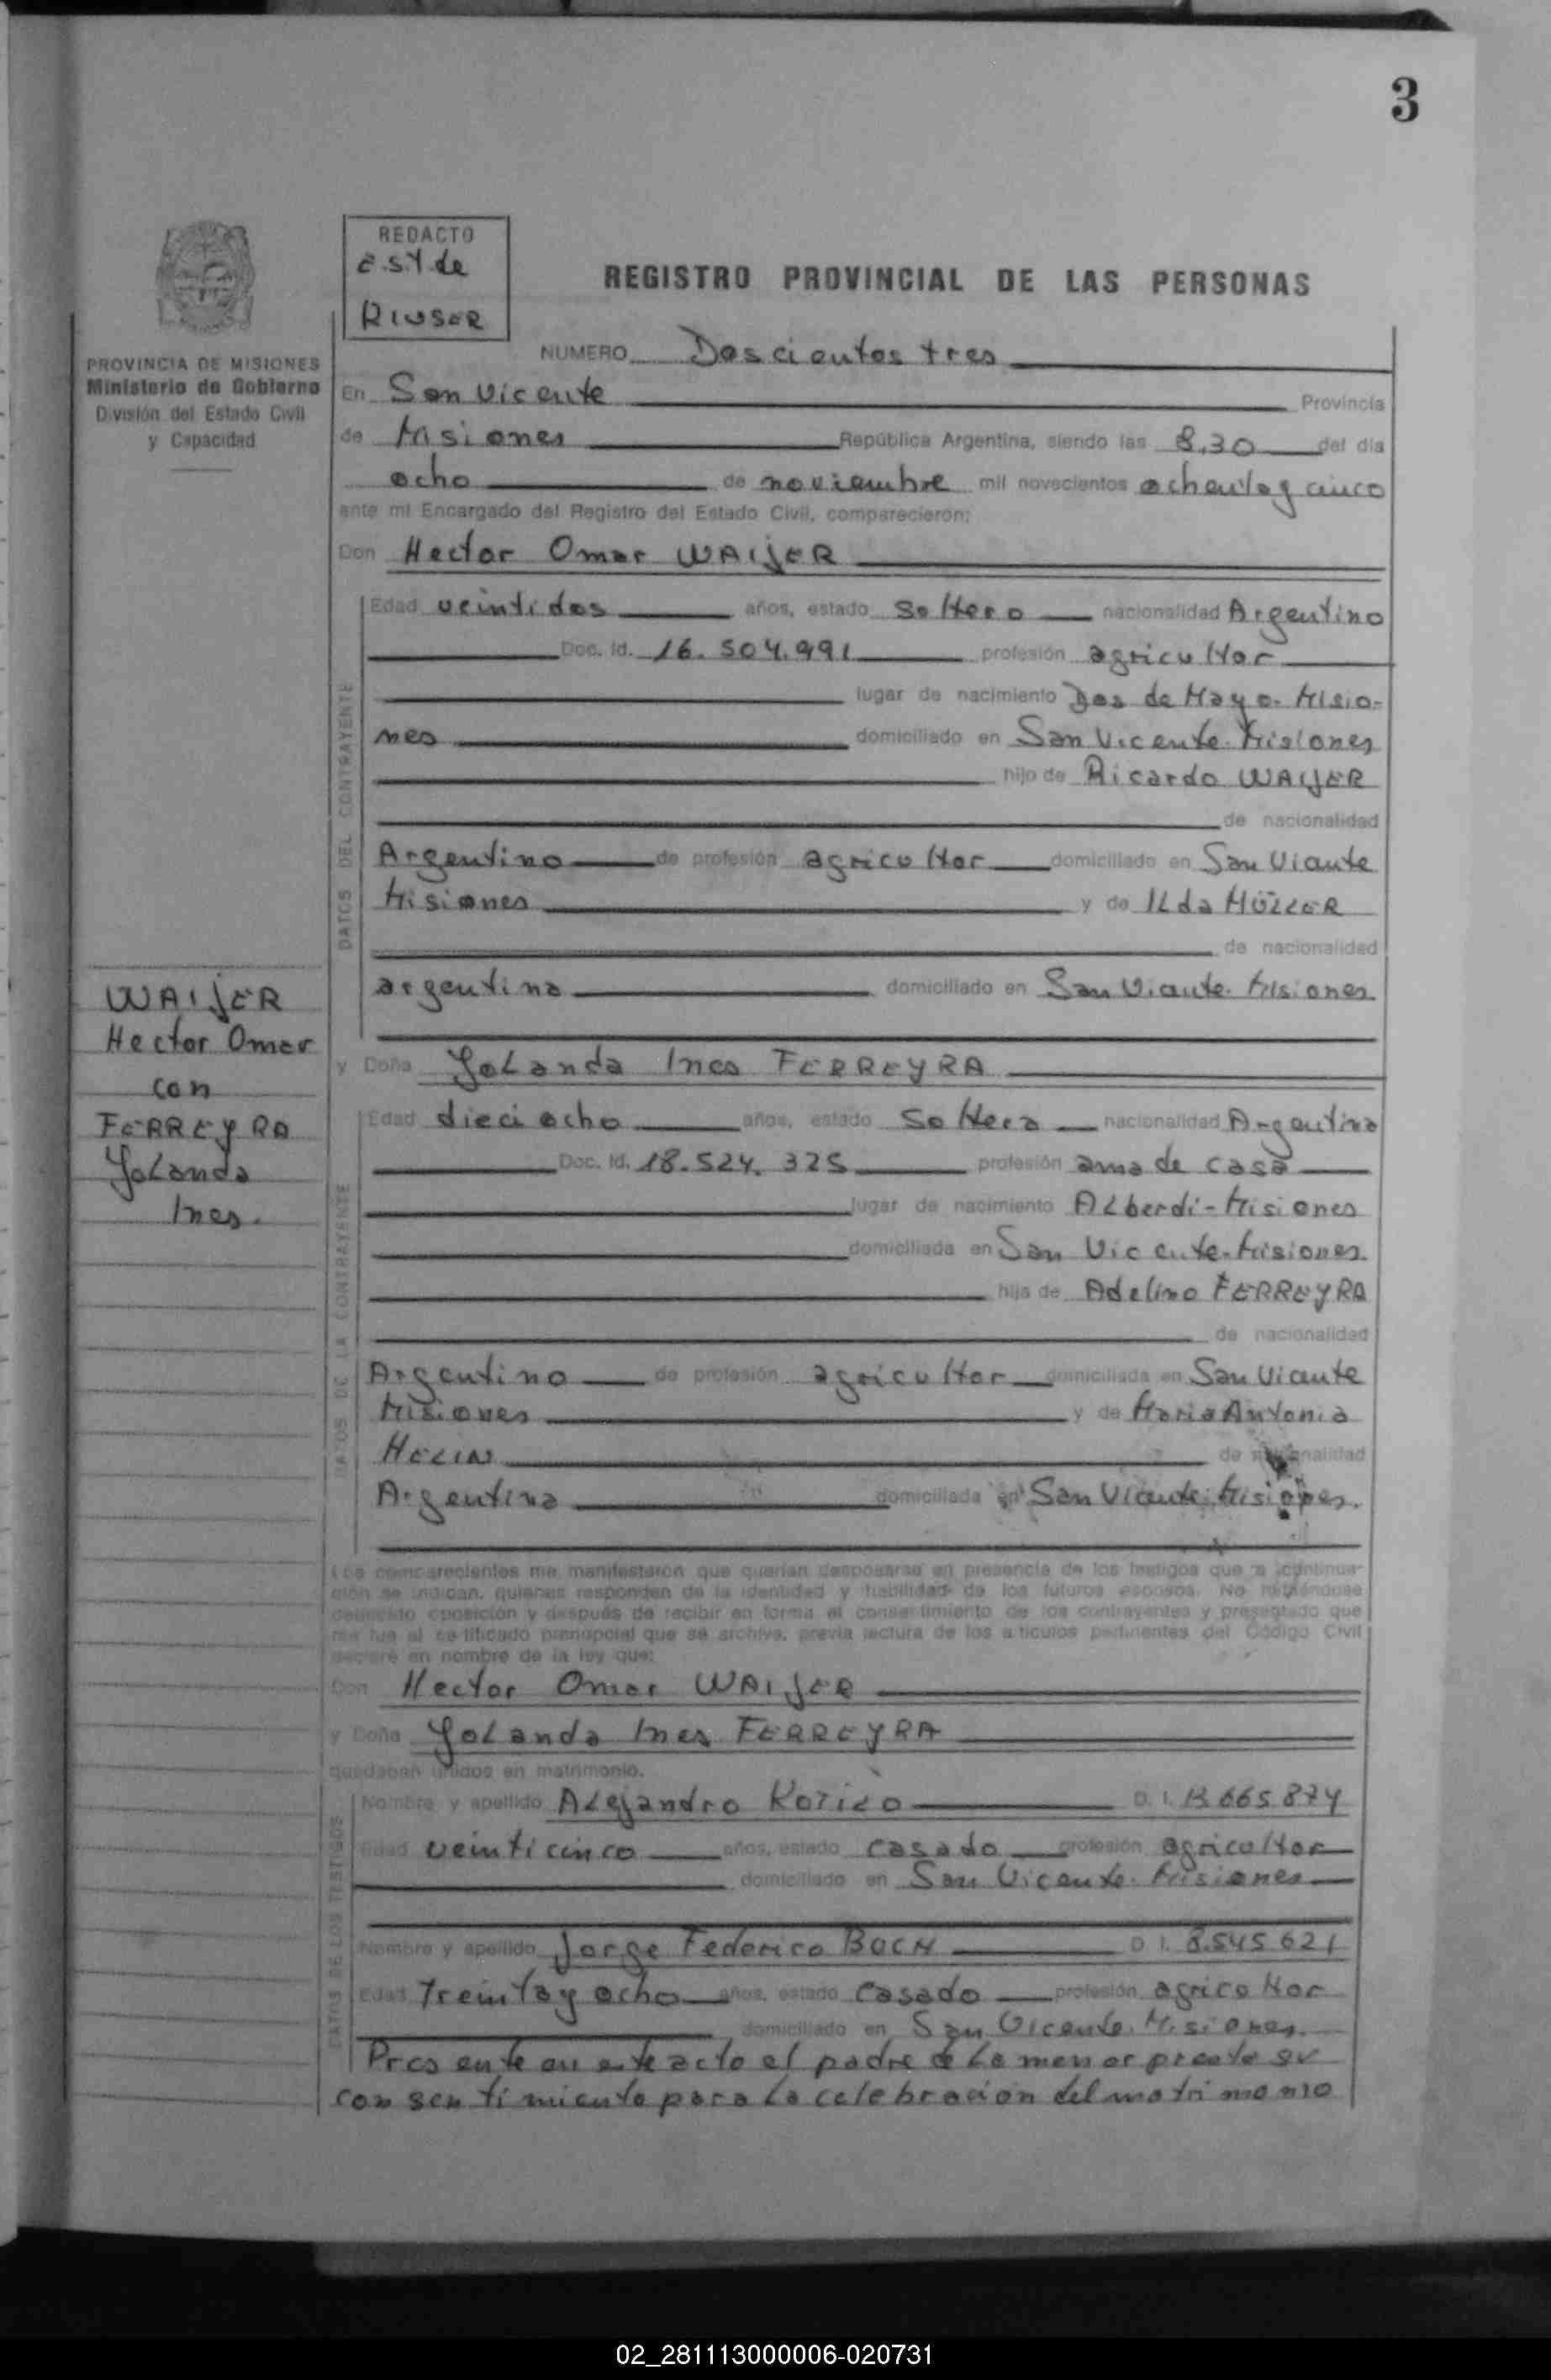 3
REDACTO
REGISTRO PROVINCIAL DE LAS PERSONAS
NUMERO Doscientos tres
PROVINCIA DE MISIONES
Ministerio de Gobierno
División del Estado Civil
y Capacidad
En San Vicente Provincia
de Misiones República Argentina, siendo las 8,30 del día
ocho de noviembre mil novecientos ochenta y cinco
ante mí Encargado del Registro del Estado Civil, comparecieron:
Don Hector Omar WAIJER
DATOS DEL CONTRAYENTE
Edad veintidos años, estado soltero nacionalidad Argentino
Doc. Id. 16.504.991 profesión agricultor
lugar de nacimiento Dos de Mayo. Misio-
nes domiciliado en San Vicente. Misiones
hijo de Ricardo WAIJER
de nacionalidad
Argentino de profesión agricultor domiciliado en San Vicente
Misiones y de ILda MÜLLER
de nacionalidad
argentina domiciliado en San Vicente. Misiones
WAIJER
Hector Omar
con
FERREYRA
Yolanda
Ines.
y Doña Yolanda Ines FERREYRA
DATOS DE LA CONTRAYENTE
Edad dieciocho años, estado soltera nacionalidad Argentina
Doc. Id. 18.524.325 profesión ama de casa
lugar de nacimiento ALberdi - Misiones
domiciliada en San Vicente. Misiones
hija de Adelino FERREYRA
de nacionalidad
Argentino de profesión agricultor domiciliada en San Vicente
Misiones y de Maria Antonia
de nacionalidad
Argentina domiciliada en San Vicente. Misiones.
Los comparecientes me manifestaron que querían desposarse en presencia de los testigos que a continua-
ción se indican, quienes responden de la identidad y habilidad de los futuros esposos. No habiéndose
deducido oposición y después de recibir en forma el consentimiento de los contrayentes y presentado que
me fue el certificado prenupcial que se archiva, previa lectura de los artículos pertinentes del Código Civil
declaré en nombre de la ley que:
Don Hector Omar WAIJER
y Doña Yolanda Ines FERREYRA
quedaban unidos en matrimonio.
DATOS DE LOS TESTIGOS
Nombre y apellido Alejandro D. I. 13.665.874
Edad veinticinco años, estado casado profesión agricultor
domiciliado en San Vicente. Misiones
Nombre y apellido Jorge Federico D. I. 8.545.621
Edad treinta y ocho años, estado casado profesión agricultor
domiciliado en San Vicente. Misiones.
Presente en este acto el padre de la menor presta su
consentimiento para la celebracion del matrimonio
02_281113000006-020731